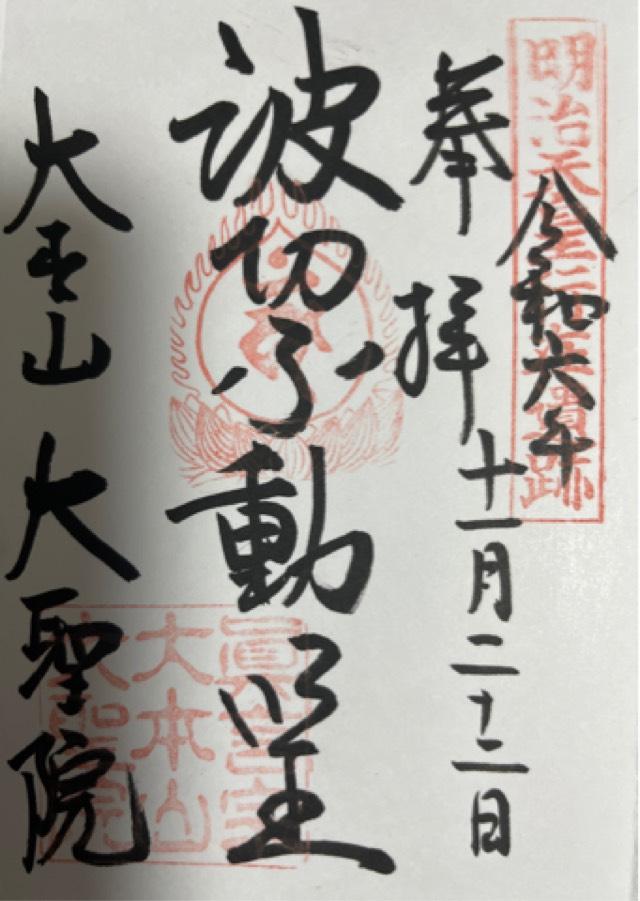 明治天皇
遺跡
奉拝
令和六年
十一月二十二日
波切不動明王
大本山 大聖院
眞言宗
大本山
大聖院